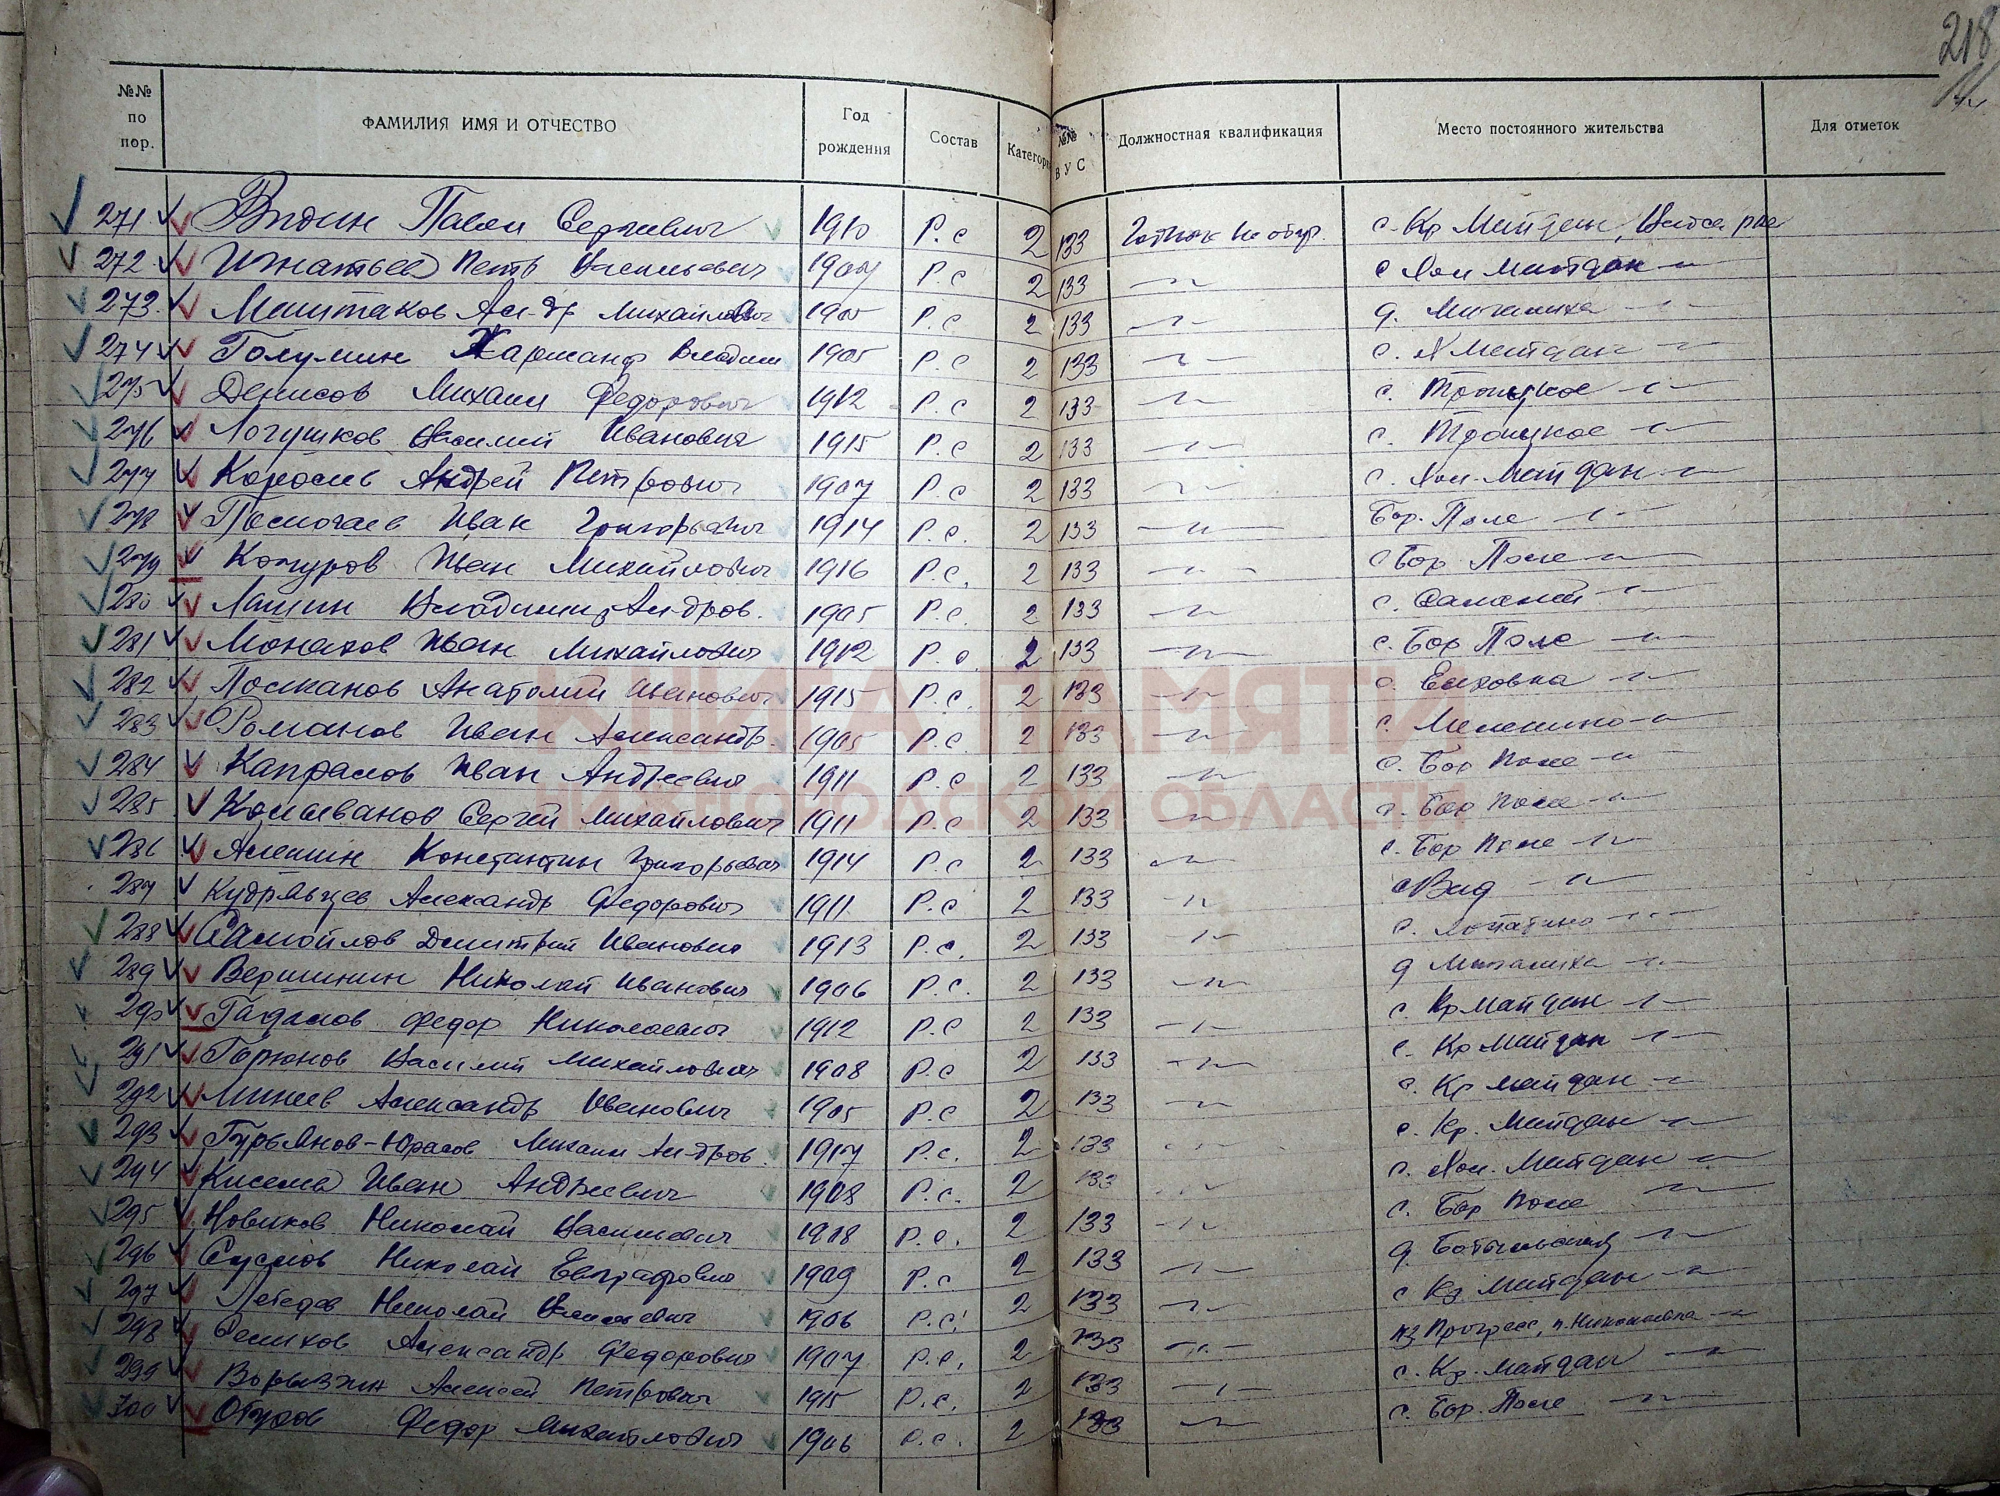 218
№№ по пор. ФАМИЛИЯ ИМЯ И ОТЧЕСТВО Год рождения Состав Категория №№ ВУС Должностная квалификация Место постоянного жительства Для отметок
271 Павел Сергеевич 1910 Р.с 2 133 с. Кр Майдан
272 Игнатьев Петр Васильевич 1907 Р.с 2 133 с Майдан -"-
273 Маштаков Ал-др Михайлович Р.с 2 133 д. -"-
274 Голумин 1905 Р.с 2 133 -"- с. Майдан -"-
275 Денисов Михаил Федорович 1912 Р.с 2 133 -"- с. Троицкое -"-
276 Логушков Василий Иванович 1915 Р.с 2 133 -"- с. Троицкое -"-
277 Андрей Петрович 1907 Р.с 2 133 -"- с. Майдан -"-
278 Иван Григорьевич 1914 Р.с. 2 133 -"- Бор. Поле -"-
279 Иван Михайлович 1916 Р.с. 2 133 -"- с Бор. Поле -"-
280 Лапин Владимир Ал-дров. 1905 Р.с. 2 133 -"- с. -"-
281 Монахов Иван Михайлович 1912 Р.с. 2 133 -"- с. Бор Поле -"-
282 Полканов Анатолий Иванович 1915 Р.с. 2 133 -"- с. Елховка -"-
283 Романов Иван Александр. 1905 Р.с. 2 133 -"- с. -"-
284 Капралов Иван Андреевич 1911 Р.с 2 133 -"- с. Бор Поле -"-
285 Колыванов Сергей Михайлович 1911 Р.с 2 133 -"- с. Бор Поле -"-
286 Алешин Константин Григорьевич 1914 Р.с 2 133 -"- с. Бор Поле -"-
287 Кудрявцев Александр Федорович 1911 Р.с 2 133 -"- с Вад -"-
288 Самойлов Дмитрий Иванович 1913 Р.с. 2 133 -"- с. Лопатино -"-
289 Вершинин Николай Иванович 1906 Р.с. 2 133 -"- д -"-
290 Федор Николаевич 1912 Р.с 2 133 -"- с. Кр Майдан -"-
291 Горюнов Василий Михайлович 1908 Р.с 2 133 -"- с. Кр Майдан -"-
292 Минеев Александр Иванович 1905 Р.с 2 133 -"- с. Кр Майдан -"-
293 Гурьянов-Юрасов Михаил Ал-дров. 1917 Р.с. 2 133 -"- с. Кр. Майдан -"-
294 Киселев Иван Андреевич 1908 Р.с. 2 133 -"- с. Майдан -"-
295 Новиков Николай Васильевич 1918 Р.с. 2 133 -"- с. Бор Поле -"-
296 Суслов Николай Евграфович 1909 Р.с 2 133 -"- д. -"-
297 Лебедев Николай 1906 Р.с. 2 133 -"- с Кр. Майдан -"-
298 Селихов Александр Федорович 1907 Р.с. 2 133 -"- Прогресс, п. Николаевка -"-
299 Алексей Петрович 1915 Р.с. 2 133 -"- с. Кр. Майдан -"-
300 Федор Михайлович 1906 Р.с. 2 133 -"- с. Бор. Поле -"-
КНИГА ПАМЯТИ
НИЖЕГОРОДСКОЙ ОБЛАСТИ